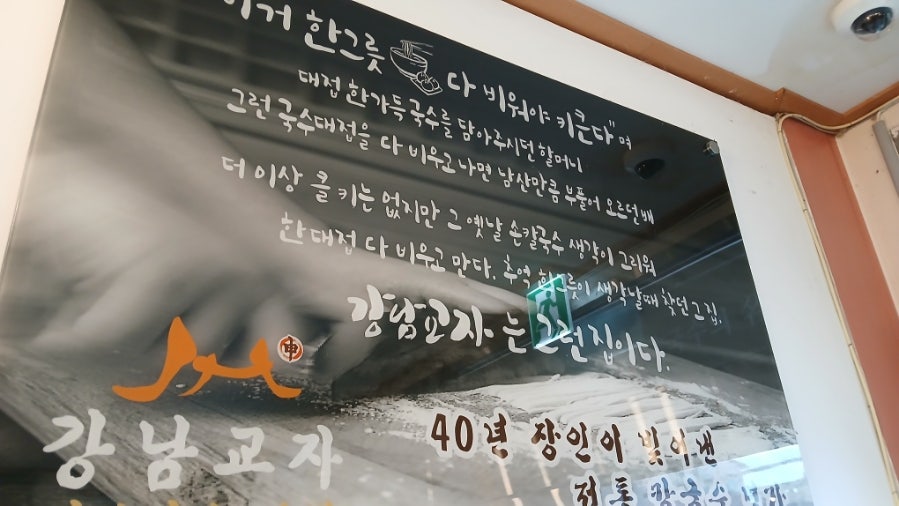 이거 한그릇 다 비워야 키큰다" 며
대접 한가득 국수를 담아주시던 할머니
그런 국수대접을 다 비우고 나면 남산만큼 부풀어 오르던 배
더 이상 클 키는 없지만 그 옛날 손칼국수 생각이 그리워
한 대접 다 비우고 만다. 추억 한그릇이 생각날때 찾던 그집,
강남교자는 그런 집이다.
申
강남교자
40년 장인이 빚어낸
전통 칼국수